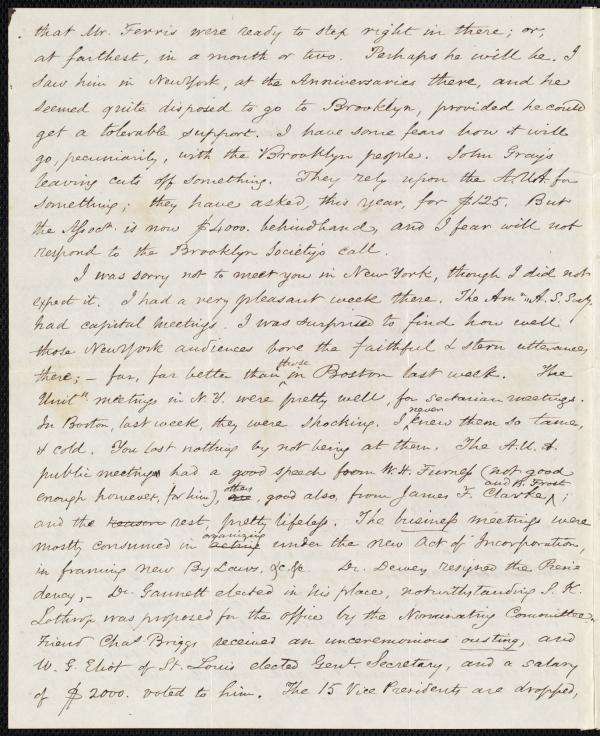 that Mr. Ferris were ready to step right in there; or,
at farthest, in a month or two. Perhaps he will be. I
saw him in New York, at the Anniversaries there, and he
seemed quite disposed to go to Brooklyn, provided he could
get a tolerable support. I have some fears how it will
go, pecuniarily, with the Brooklyn people. John Gray's
leaving cuts off something. They rely upon the A.U.A. for
something; they have asked, this year, for $125. But
the Assocn. is now $4000. behindhand, and I fear will not
respond to the Brooklyn Society's call.
I was sorry not to meet you in New York, though I did not
expect it. I had a very pleasant week there. The Amn. A. S. Socy.
had capital meetings. I was surprised to find how well
those New York audiences bore the faithful & stern utterances
there; – far, far better than those in Boston last week. The
Unitn. meetings in N.Y. were pretty well, for sectarian meetings.
In Boston, last week, they were shocking. I never knew them so tame,
& cold. You lost nothing by not being at them. The A.U.A.
public meeting had a good speech from W. H. Furness (not good
enough however, for him), other, good also, from James F. Clarke, and R. Frost;
and the reason rest, pretty lifeless. The business meetings were
mostly consumed in acting organizing under the new Act of Incorporation,
in framing new By Laws, &c. &c. Dr. Dewey resigned the Presi
dency, – Dr. Gannett elected in his place, notwithstanding S. K.
Lothrop was proposed for the office by the Nominating Committee.
Friend Chas. Briggs received an unceremonious ousting, and
W. G. Eliot of St. Louis elected Genl. Secretary, and a salary
of $2000. voted to him. The 15 Vice Presidents are dropped,